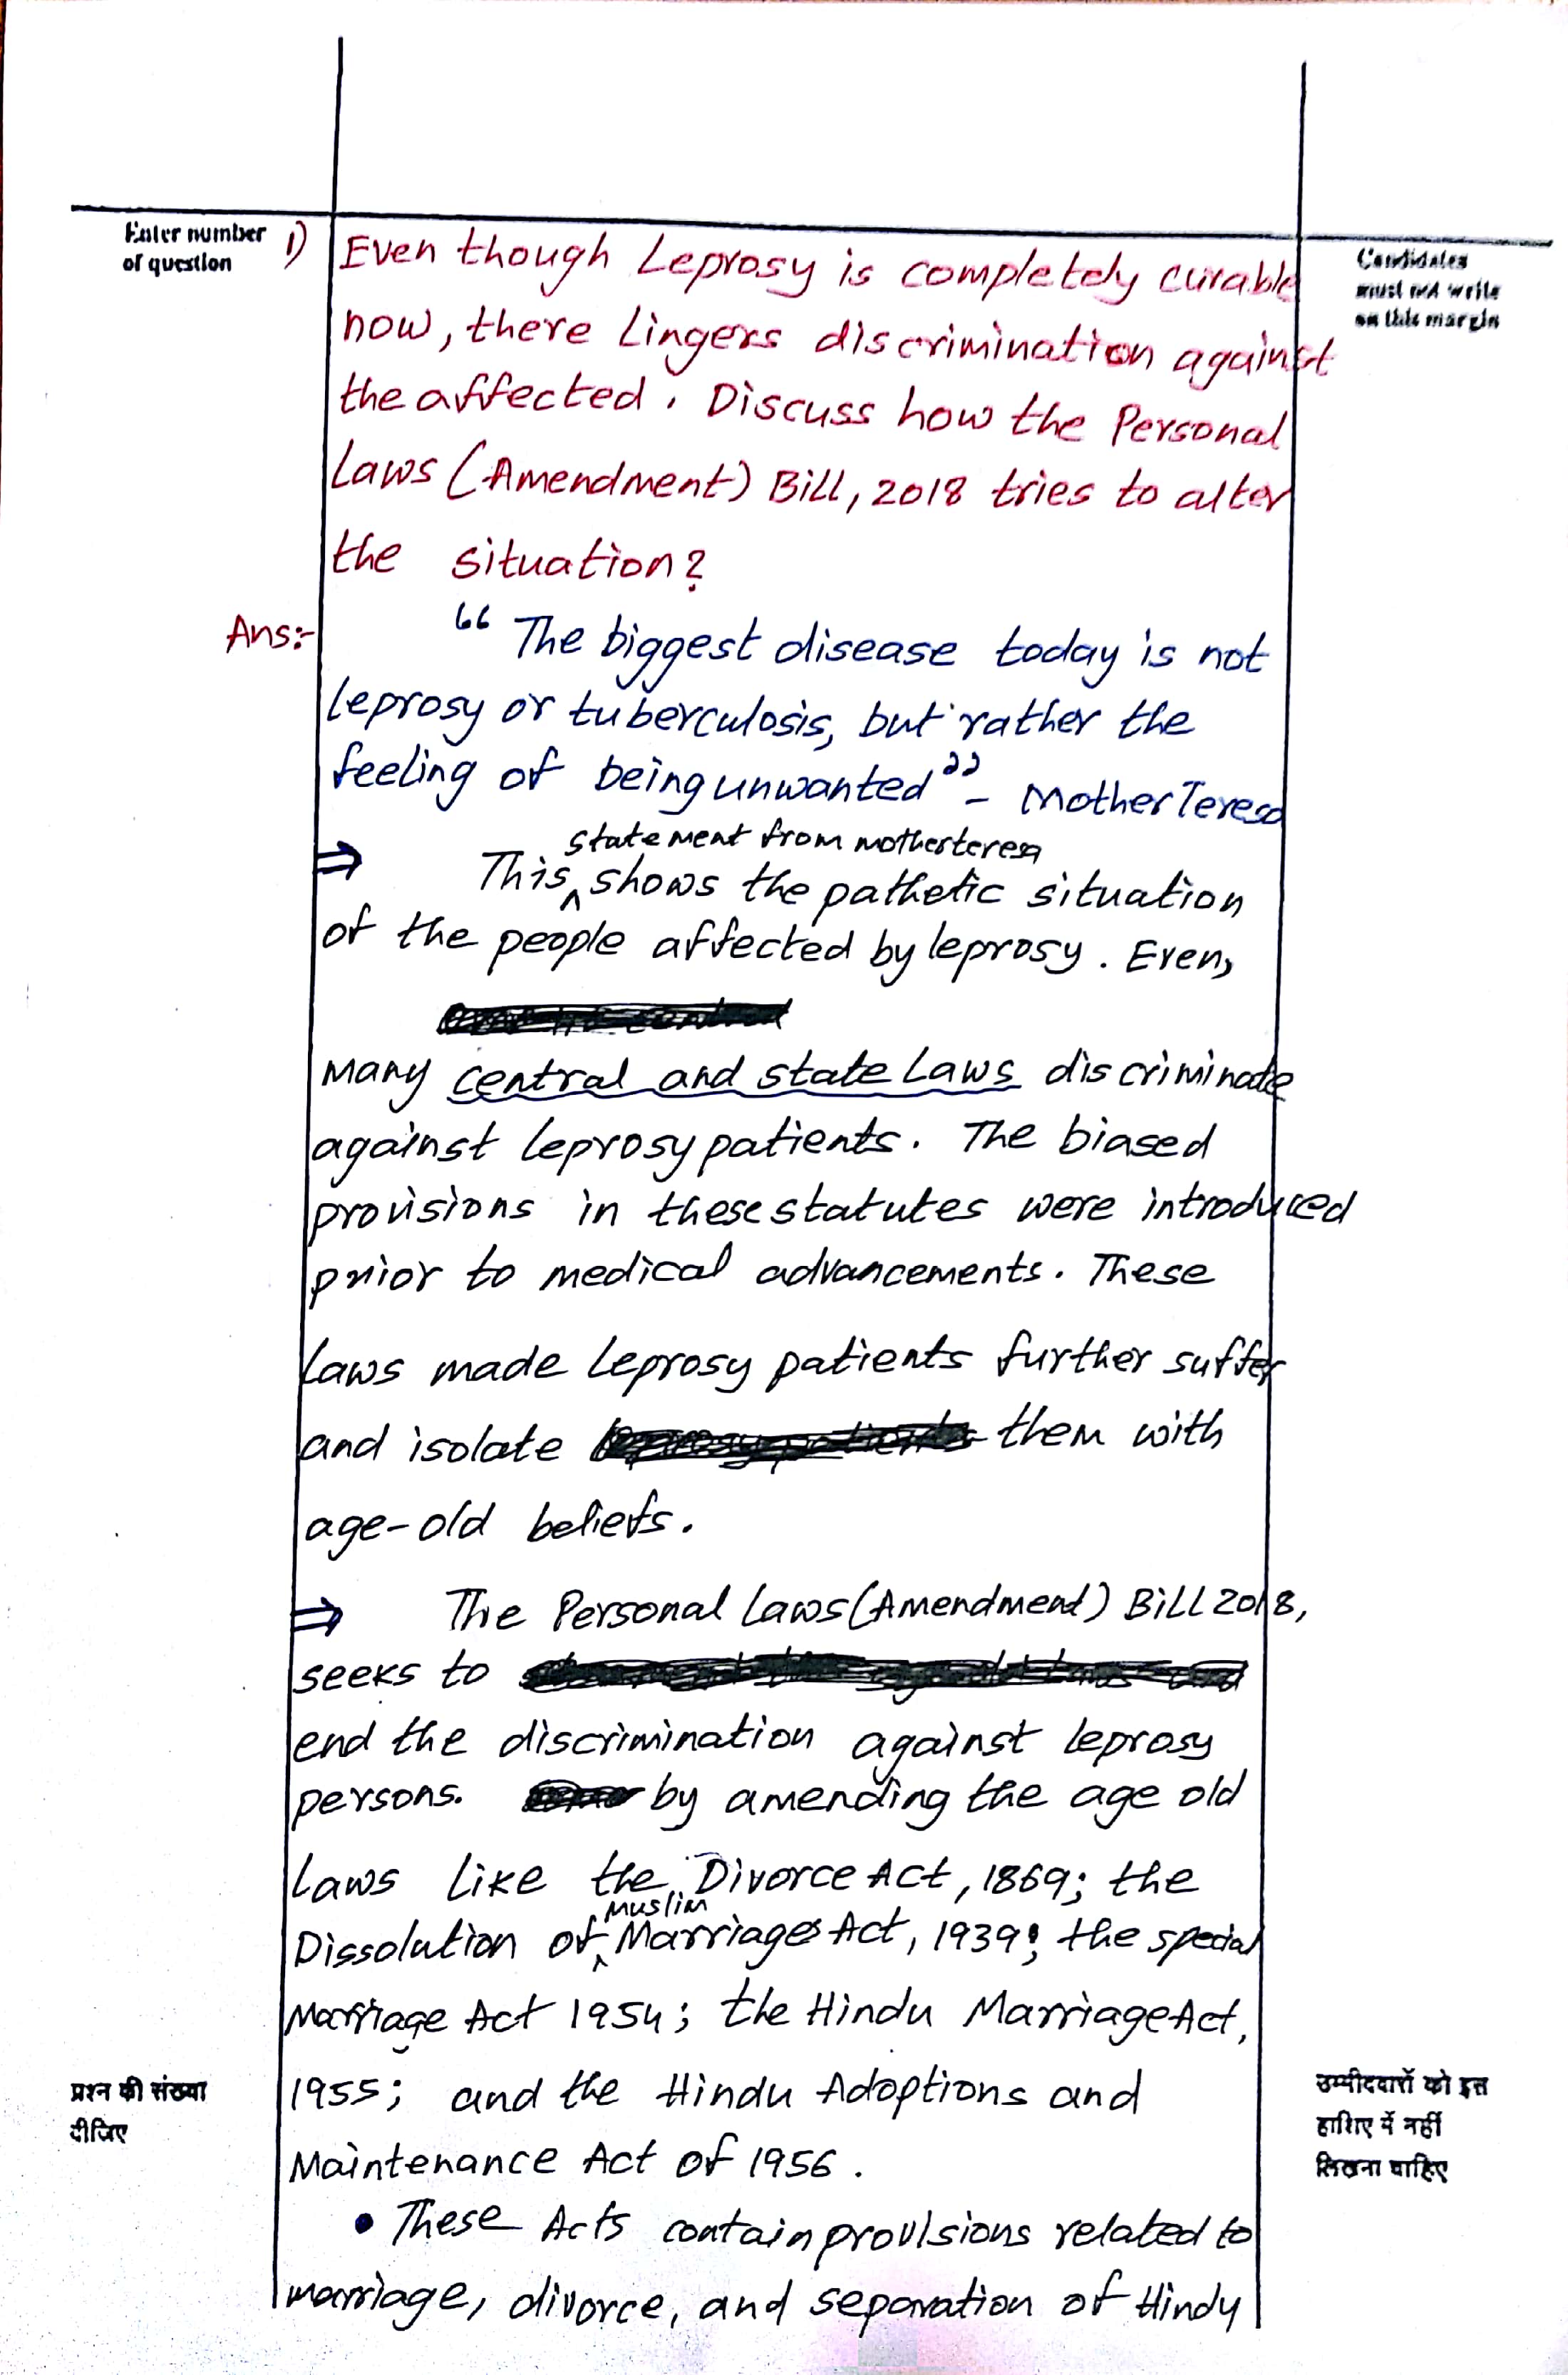 Enter number
of question
Candidates
must not write
on this margin
1) Even though Leprosy is completely curable
now, there Lingers discrimination against
the affected. Discuss how the Personal
Laws (Amendment) Bill, 2018 tries to alter
the situation?
Ans:- "The biggest disease today is not
leprosy or tuberculosis, but rather the
feeling of being unwanted" - Mother Teresa
statement from motherteresa
⇒ This ^ shows the pathetic situation
of the people affected by leprosy. Even,
many central and state Laws discriminate
against leprosy patients. The biased
provisions in these statutes were introduced
prior to medical advancements. These
laws made leprosy patients further suffer
and isolate them with
age-old beliefs.
⇒ The Personal Laws (Amendment) Bill 2018,
seeks to
end the discrimination against leprosy
persons. by amending the age old
laws like the Divorce Act, 1869; the
muslim
Dissolution of ^ Marriages Act, 1939; the special
Marriage Act 1954; the Hindu Marriage Act,
1955; and the Hindu Adoptions and
Maintenance Act of 1956.
• These Acts contain provisions related to
marriage, divorce, and separation of Hindu
प्रश्न की संख्या
दीजिए
उम्मीदवारों को इस
हाशिए में नहीं
लिखना चाहिए